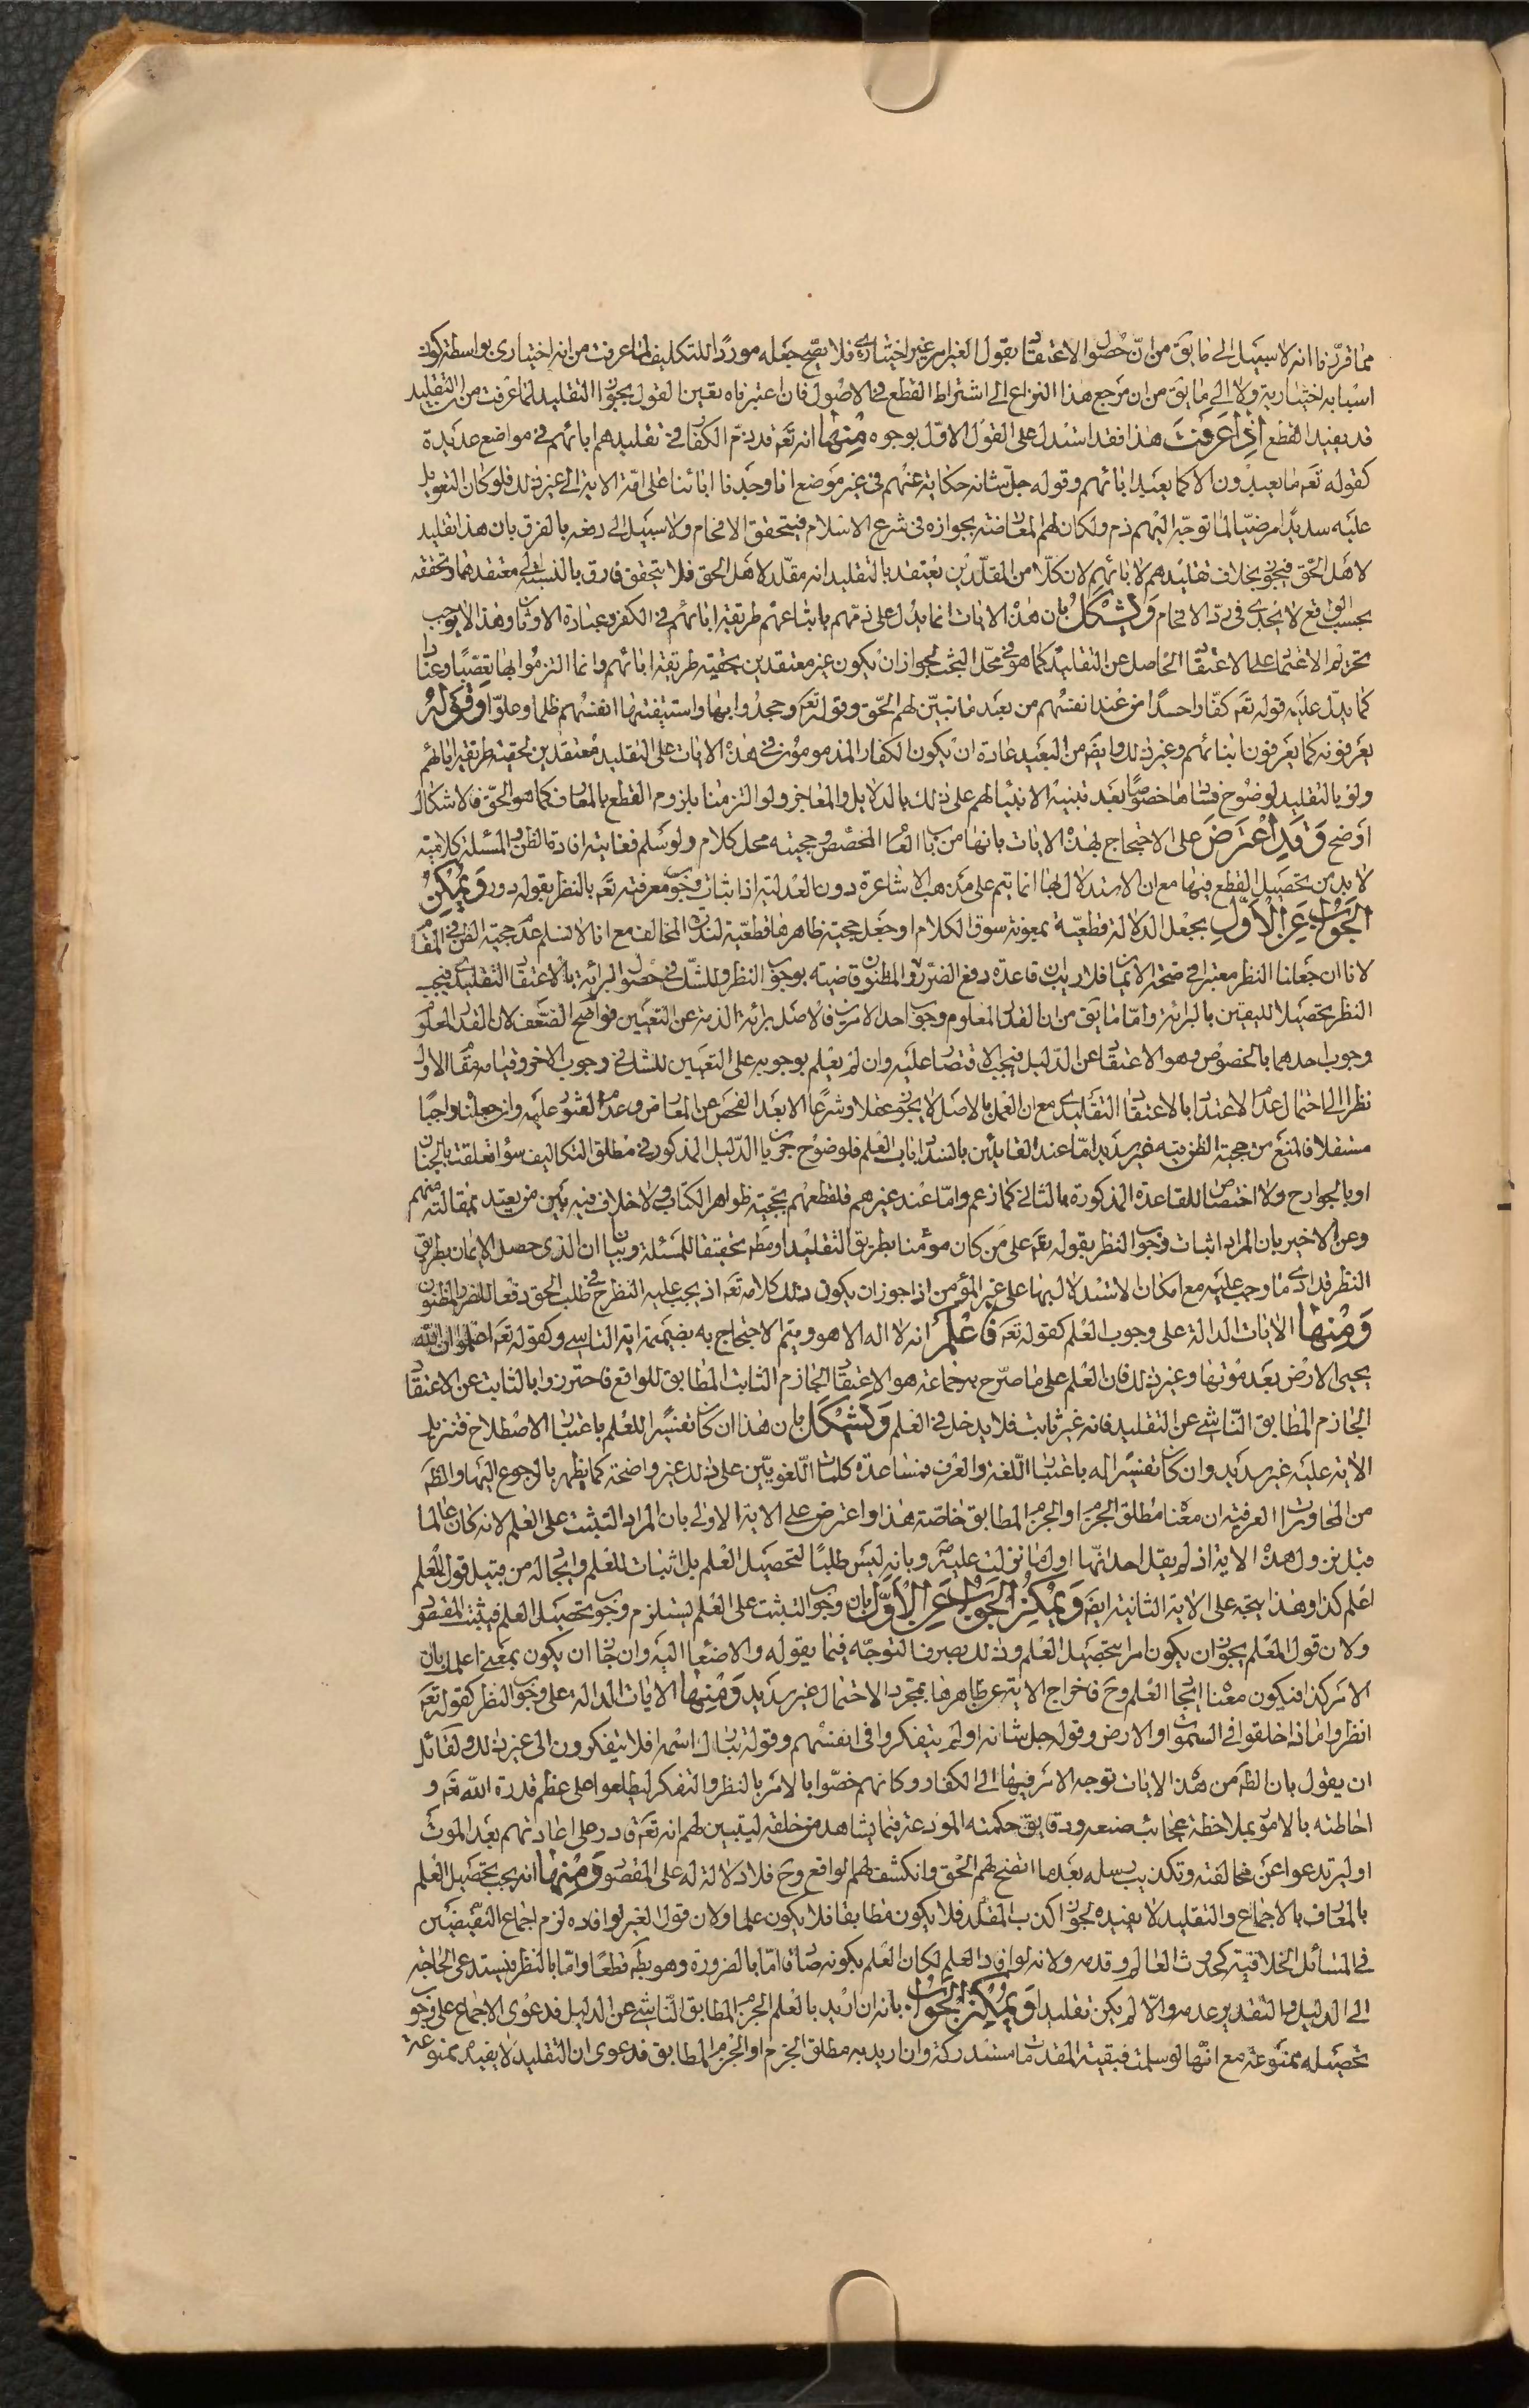 مما قررنا انه لا سبيل الى ما يق من ان حصول الاعتقاد بقول الغير امر غير اختياري فلا يصح جعله موردا للتكليف لما عرفت من انه اختياري بواسطة كون
اسبابه اختيارية ولا الى ما يق من ان مرجع هذا النزاع الى اشتراط القطع في الاصول فان اعتبرناه تعين القول بجواز التقليد لما عرفت من ان التقليد
قد يفيد القطع اذا عرفت هذا فقد استدل على القول الاول بوجوه منها انه تعه قد ذم الكفار في تقليدهم ابائهم في مواضع عديدة
كقوله تعه ما يعبدون الا كما يعبد ابائهم وقوله جل شانه حكاية عنهم في غير موضع انا وجدنا ابائنا على امة الاية الى غير ذلك فلو كان التعويل
عليه سديدا مرضيا لما توجه اليهم ذم ولكان لهم المعارضة بجوازه في شرع الاسلام فيتحقق الافحام ولا سبيل الى دفعه بالفرق بان هذا تقليد
لاهل الحق فيجوز بخلاف تقليدهم لابائهم لان كلا من المقلدين يعتقد بالتقليد انه مقلد لاهل الحق فلا يتحقق فارق بالنسبة الى معتقدهما وتحققه
بحسب الواقع لا يجدي في رد الافحام ويشكل بان هذه الايات انما يدل على ذمهم باتباعهم طريقة ابائهم في الكفر وعبادة الاوثان وهذا لا يوجب
تحريم الاعتماد على الاعتقاد الحاصل عن التقليد كما هو في محل البحث لجواز ان يكون غير معتقدين بحقية طريقة ابائهم وانما التزموا بها تعصبا وعنادا
كما يدل عليه قوله تعه كفارا حسدا من عند انفسهم من بعد ما تبين لهم الحق وقوله تعه وجحدوا بها واستيقنتها انفسهم ظلما وعلوا وقوله
يعرفونه كما يعرفون ابنائهم وغير ذلك وايضه من البعيد عادة ان يكون الكفار المذمومون في هذه الايات على التقليد معتقدين لحقية طريقة ابائهم
ولو بالتقليد لوضوح فسادها خصوصا بعد تنبيه الانبياء لهم على ذلك بالدلايل والمعاجز ولو التزمنا بلزوم القطع بالمعارف كما هو الحق فالاشكال
اوضح وقد اعترض على الاحتجاج بهذه الايات بانها من باب العام المخصص وحجيته محل كلام ولو سلم فغايته افادة الظن والمسئلة كلامية
لا بد من تحصيل القطع فيها مع ان الاستدلال بها انما يتم على مذهب الاشاعرة دون العدلية اذ اثبات وجوب معرفته تعه بالنظر بقوله دور ويمكن
الجواب عن الاول بجعل الدلالة قطعية بمعونة سوق الكلام او جعل حجية ظاهرها قطعية لندرة المخالف مع انا لا نسلم عدم حجية الظن في المقام
لانا ان جعلنا النظر معتبرا في صحة الايمان فلا ريب ان قاعدة دفع الضرر والمظنون قاضية بوجوب النظر وللشك في حصول البرائة بالاعتقاد التقليدي فيجب
النظر تحصيلا لليقين بالبرائة واما ما يق من ان القدر المعلوم وجوب احد الامرين فالاصل برائة الذمة عن التعيين فواضح الضعف لان القدر المعلوم
وجوب احدهما بالخصوص وهو الاعتقاد عن الدليل فيجب الاقتصار عليه وان لم يعلم بوجوبه على التعيين للشك في وجوب الاخر وقيامه مقام الاول
نظرا الى احتمال عدم الاعتداد بالاعتقاد التقليدي مع ان العمل بالاصل لا يجوز عقلا وشرعا الا بعد الفحص عن المعارض وعدم العثور عليه وان جعلناه واجبا
مستقلا فالمنع من حجية الظن فيه غير سديد اما عند القائلين بانسداد باب العلم فلوضوح جريان الدليل المذكور في مطلق التكاليف سواء تعلقت بالجنان
او بالجوارح ولا اختصاص للقاعدة المذكورة بالثاني كما زعم واما عند غيرهم فلقطعهم بحجية ظواهر الكتاب ولا خلاف فيه بين من يعتد بمقالته منهم
وعن الاخير بان المراد اثبات وجوب النظر بقوله تعه على من كان مؤمنا بطريق التقليد او مطه تحقيقا للمسئلة وبيان ان الذي حصل الايمان بطريق
النظر قد ادى ما وجب عليه مع امكان الاستدلال بها على غير المؤمن اذا جوز ان يكون ذلك كلامه تعه اذ يجب عليه النظر ح في طلب الحق دفعا للضرر المظنون
ومنها الايات الدالة على وجوب العلم كقوله تعه فاعلم انه لا اله الا هو ويتم الاحتجاج به بضميمة اية التاسي وكقوله تعه اعلموا ان الله
يحيي الارض بعد موتها وغير ذلك فان العلم على ما صرح به جماعة هو الاعتقاد الجازم الثابت المطابق للواقع فاحترزوا بالثابت عن الاعتقاد
الجازم المطابق الناشي عن التقليد فانه غير ثابت فلا يدخل في العلم ويشكل بان هذا ان كان تفسيرا للعلم باعتبار الاصطلاح فتنزيل
الاية عليه غير سديد وان كان تفسيرا له باعتبار اللغة والعرف فمساعدة كلمات اللغويين على ذلك غير واضحة كما يظهر بالرجوع اليها والظه
من المحاورات العرفية ان معناه مطلق الجزم او الجزم المطابق خاصة هذا واعترض على الاية الاولى بان المراد التثبت على العلم لانه كان عالما
قبل نزول هذه الاية اذ لم يقل احد انها اول ما نزلت عليه ص وبانه ليس طلبا لتحصيل العلم بل اثبات للعلم وايجاد له من قبيل قول المعلم
اعلم كذا وهذا يتجه على الاية الثانية ايضه ويمكن الجواب عن الاول بان وجوب التثبت على العلم يستلزم وجوب تحصيل العلم فيثبت المقصود
ولان قول المعلم يجوز ان يكون امرا بتحصيل العلم وذلك بصرف التوجه فيما يقوله والاصغاء اليه وان جاز ان يكون بمعنى اعلمك بان
الامر كذا فيكون معناه ايجاد العلم وح فاخراج الاية عن ظاهرها بمجرد الاحتمال غير سديد ومنها الايات الدالة على وجوب النظر كقوله تعه
انظروا ماذا خلقوا في السموات والارض وقوله جل شانه اولم يتفكروا في انفسهم وقوله تبارك اسمه افلا يتفكرون الى غير ذلك ولقائل
ان يقول بان الظه من هذه الايات توجه الامر فيها الى الكفار وكانهم خصوا بالامر بالنظر والتفكر ليطلعوا على عظم قدرة الله تعه و
احاطته بالامور بملاحظة عجائب صنعه ودقايق حكمته المودعة فيما يشاهد من خلقه ليتبين لهم انه تعه قادر على اعادتهم بعد الموت
او ليرتدعوا عن مخالفته وتكذيب رسله بعدما اتضح لهم الحق وانكشف لهم الواقع وح فلا دلالة له على المقصود ومنها انه يجب تحصيل العلم
بالمعارف بالاجماع والتقليد لا يفيده لجواز كذب المقلد فلا يكون مطابقا فلا يكون علما ولان قول الغير لو افاده لزم اجتماع النقيضين
في المسائل الخلافية كحدوث العالم وقدمه ولانه لو افاد العلم لكان العلم بكونه صادقا اما بالضرورة وهو بطه قطعا واما بالنظر فيستدعي الحاجة
الى الدليل والتقدير عدمه والا لم يكن تقليدا ويمكن الجواب بانه ان اريد بالعلم الجزم المطابق الناشي عن الدليل فدعوى الاجماع على وجوب
تحصيله ممنوعة مع انها لو سلمت فبقية المقدمات مستدركة وان اريد به مطلق الجزم او الجزم المطابق فدعوى ان التقليد لا يفيده ممنوعة